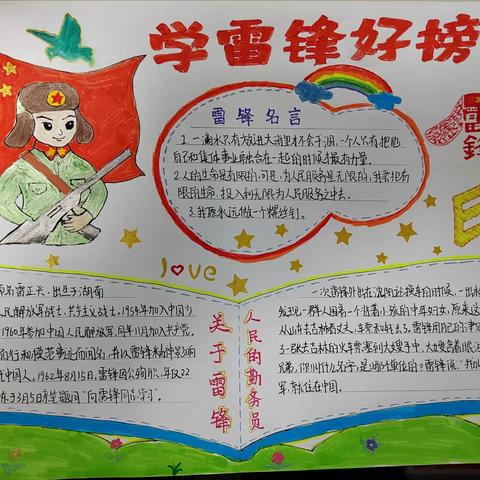 学雷锋好榜
雷锋
雷锋名言
1.一滴水只有放进大海里才不会干涸,一个人只有把他
自己和集体事业融合在一起的时候才最有力量。
2.人的生命是有限的,可是,为人民服务是无限的,我要把有
限的生命,投入到无限为人民服务之中去。
3.我愿永远做一个螺丝钉。
love
原名雷正兴,出生于湖南
人民解放军战士,共产主义战士,1954年加入中国少
1960年参加中国人民解放军,同年11月加入共产党。
而闻名
中国人,1962年8月15日,雷锋因公殉职,年仅22
3月5日
"向雷锋同志学习"。
关于雷锋
人民的勤务员
一次雷锋外出在沈阳站换车的时候,一出
发现一群人围着一个背着小孩的中年妇女,原来这
从山东去吉林看丈夫,车票和钱丢了。雷锋用自己的津
一张去吉林的火车票塞到大嫂手中,大嫂含着眼
兄弟,你叫什么名字,是哪个单位的?雷锋说:"我
军,就住在中国。